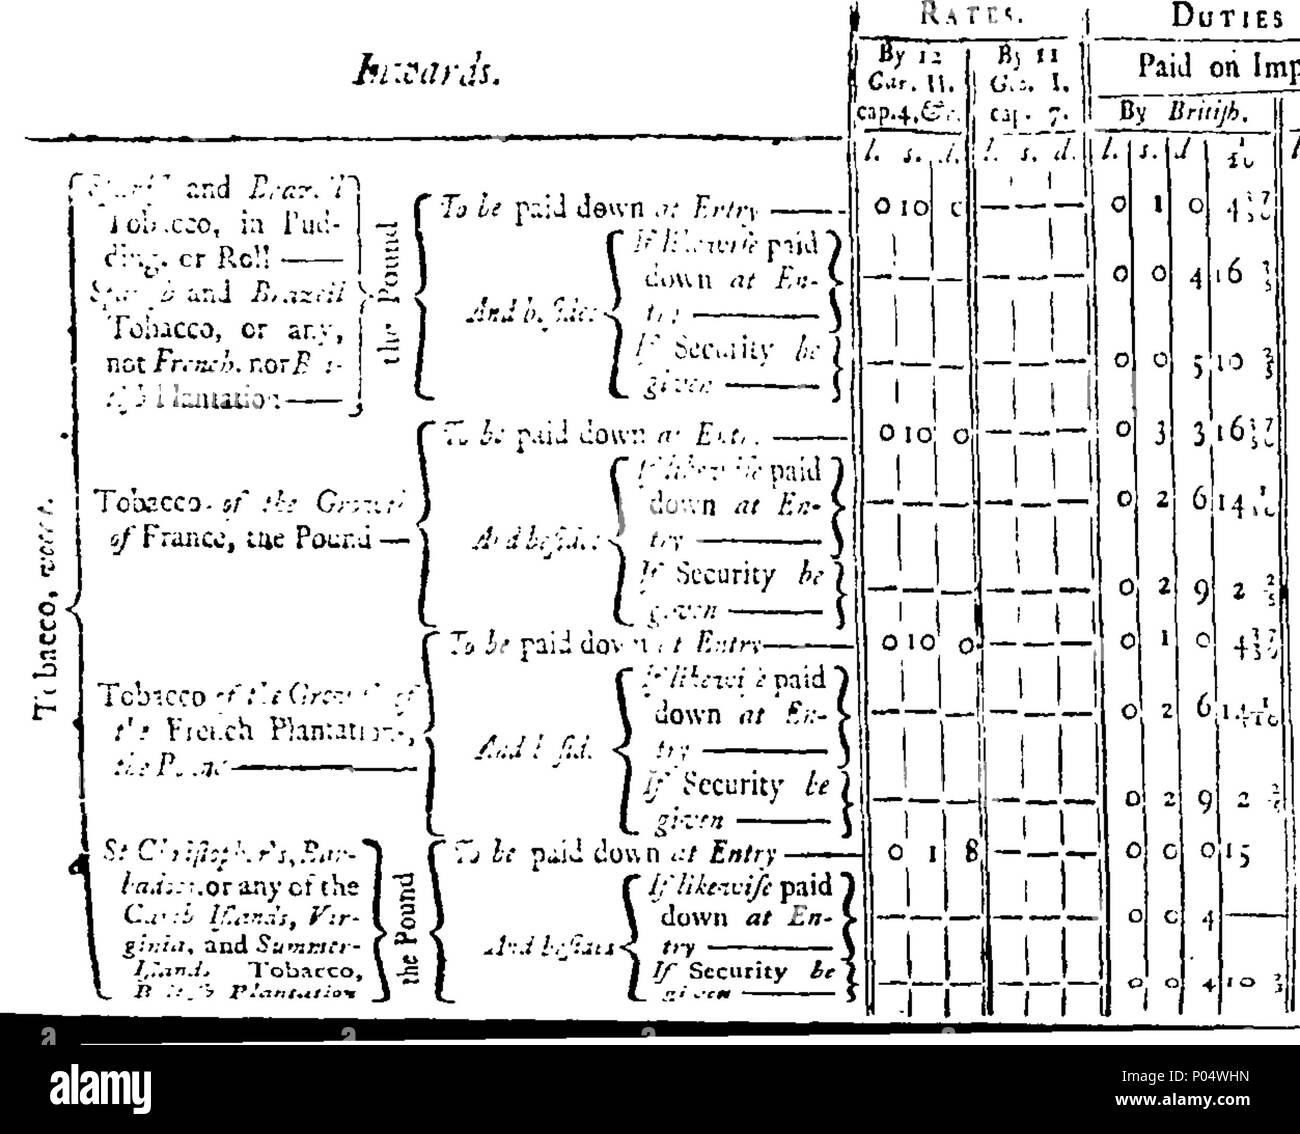 RATES. DUTIES
Inwards.
By 12 By 11 Paid on Imp
Car. II. Geo. I.
cap. 4, &c. cap. 7. By Britiſh.
l. s. d. l. s. d. l. s. d 1/20
Tobacco,
and Brazil
Tobacco, in Pud-
ding, or Roll —
Spaniſh and Brazeil
Tobacco, or any,
not French, nor Bri-
tiſh Plantation —
the Pound
To be paid down at Entry — 0 10 0 — — — 0 1 0 4
And beſides
If likewiſe paid
down at En-
try — — — — — — — 0 0 4 16
If Security be
given — — — — — — — 0 0 5 10 2/3
Tobacco of the Growth
of France, the Pound —
To be paid down at Entry — 0 10 0 — — — 0 3 3 16
And beſides
If likewiſe paid
down at En-
try — — — — — — — 0 2 6 14
If Security be
given — — — — — — — 0 2 9 2
Tobacco of the Growth of
the French Plantations,
the Pound —
To be paid down at Entry — 0 10 0 — — — 0 1 0 4
And beſides
If likewiſe paid
down at En-
try — — — — — — — 0 2 6 14
If Security be
given — — — — — — — 0 2 9 2
St Chriſtopher's, Bar-
badoes, or any of the
Carib Iſlands, Vir-
ginia, and Summer-
Iſlands Tobacco,
Britiſh Plantation
the Pound
To be paid down at Entry — 0 1 8 — — — 0 0 0 15
And beſides
If likewiſe paid
down at En-
try — — — — — — — 0 0 4 —
If Security be
given — — — — — — — 0 0 4 10 2/3
alamy
Image ID: P04WHN
www.alamy.com